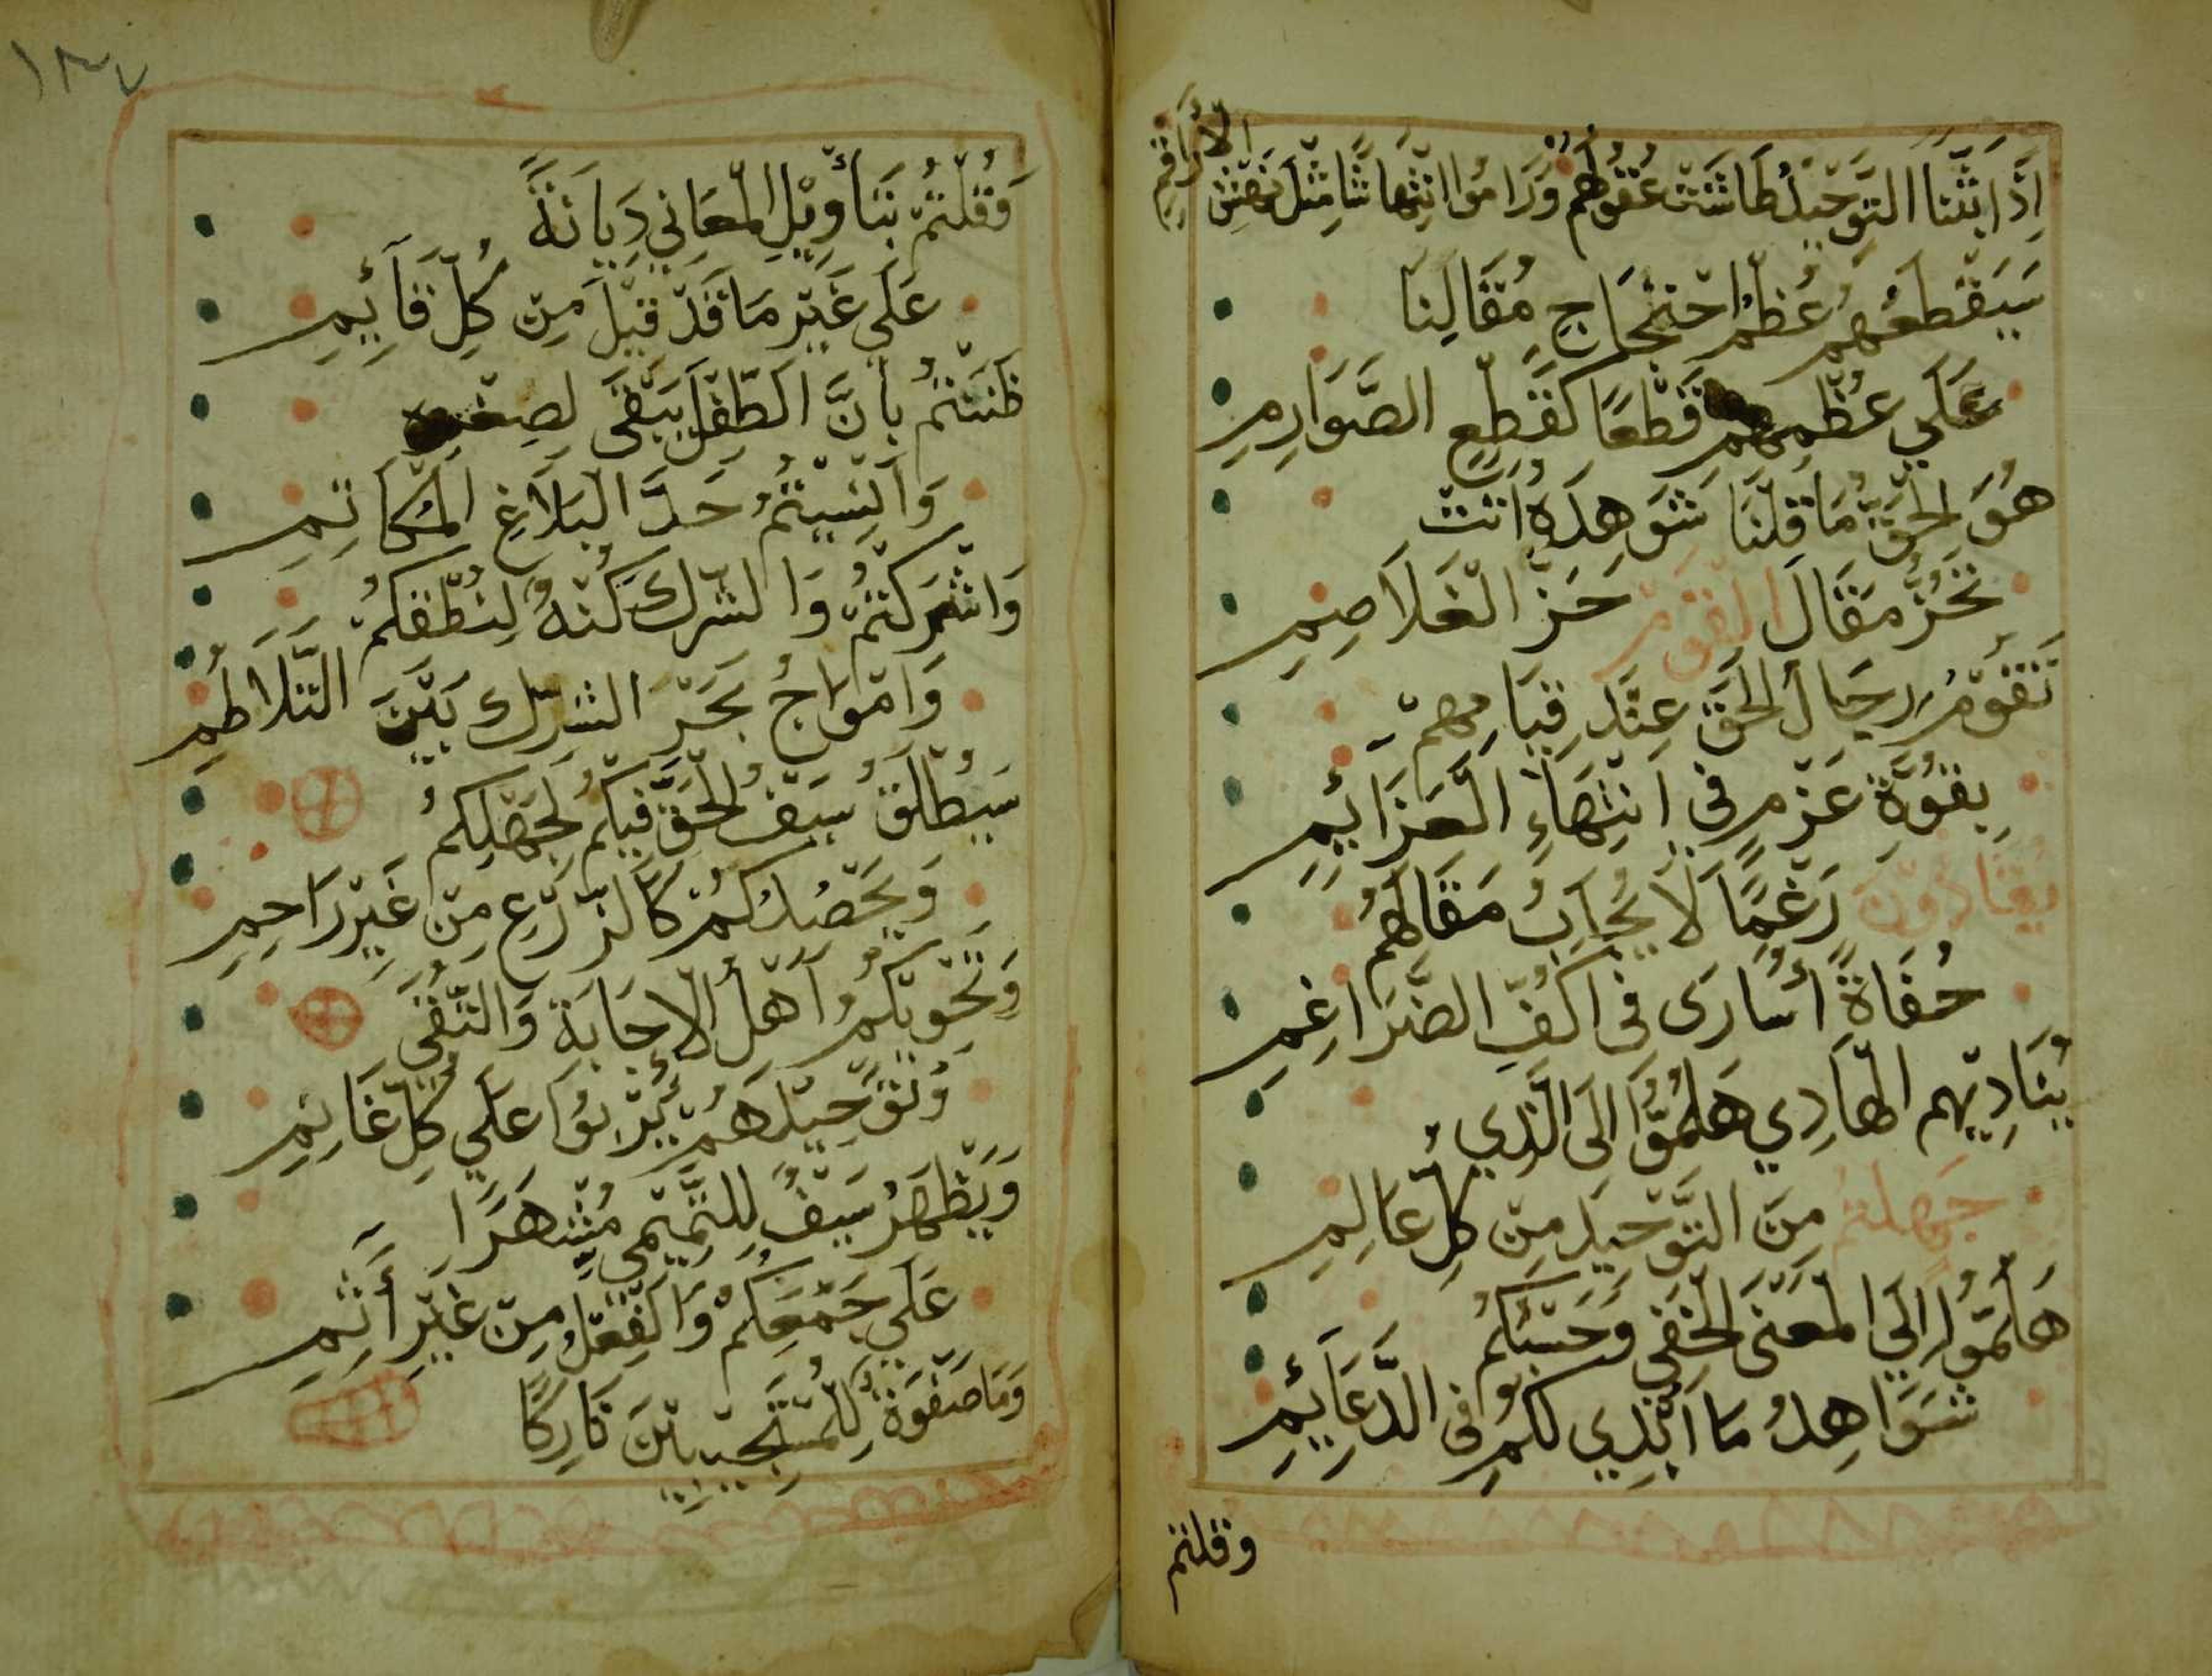 إِذَا بَثَثْنَا التَّوْحِيدَ طَاشَتْ عُقُولُهُمْ وَرَامُوا انْتِهَاشًا مِثْلَ نَهْشِ الأَرَاقِمِ
سَيَقْطَعُهُمْ عُظْمُ احْتِجَاجِ مَقَالِنَا
عَلَي عُظْمِهِمْ قَطْعًا كَقَطْعِ الصَّوَارِمِ
هُوَ الْحَقُّ مَا قُلْنَا شَوَهِدَهُ اتَتْ
تَحُزُّ مَقَالَ الْقَوْمِ حَزَّ الْغَلَاصِمِ
تَقُوْمُ رِجَالُ الْحَقِّ عِنْدَ قِيَامِهِمْ
بِقُوَّةِ عَزْمٍ فِي انْتِهَاءِ الْعَزَائِمِ
يُقَادُوْنَ رَغْمًا لَا يُجَابُ مَقَالُهُمْ
حُفَاةً أُسَارَى فِي اكُفِّ الضَّرَاغِمِ
يُنَادِيْهِم الْهَادِي هَلُمُّوا الَى الَّذِي
جَهِلْتُمْ مِنَ التَّوْحِيْدِ مِنْ كُلِّ عَالِمِ
هَلُمُّوا الَي الْمَعْنَى الْخَفِي وَحَسْبُكُمْ
شَوَاهِدُ مَا ابْدِي لَكُمْ فِي الدَّعَائِمِ
وقلتم
١٣٧
وَقُلْتُمْ بِتَأْوِيْلِ الْمَعَانِي دِيَانَةً
عَلَي غَيْرِ مَا قَدْ قِيْلَ مِنْ كُلِّ قَائِمِ
ظَنَنْتُمْ بِأَنَّ الطِّفْلَ يَبْقَى لِصِغْرِهِ
وَانْسِيْتُمُ حَدَّ الْبَلَاغِ الْمُكَاتِمِ
وَاشْرَكْتُمُ وَالشِّرْكُ كُنْهُ لِنُطْقِكُمْ
وَامْوَاجُ بَحْرِ الشِّرْكِ بَيْنَ التَّلَاطُمِ
سَيُطْلَقُ سَيْفُ الْحَقِّ فِيْكُمْ لِجَهْلِكُمْ
وَيَحْصُدُكُمْ كَالزَّرْعِ مِنْ غَيْرِ رَاحِمِ
وَتَحْوِيْكُمُ اهْلُ الْاِجَابَةِ وَالتُّقَى
وَتَوْحِيْدُهُمْ يَرْبُوا عَلَي كُلِّ غَانِمِ
وَيَظْهَرُ سَيْفٌ لِلتَّمِيْمِي مُشْهَرًا
عَلَي جَمْعِكُمْ وَالْفِعْلُ مِنْ غَيْرِ أَثِمِ
وَمَا صَفْوَةٌ لِلْمُسْتَجِيْبِيْنَ تَارِكًا